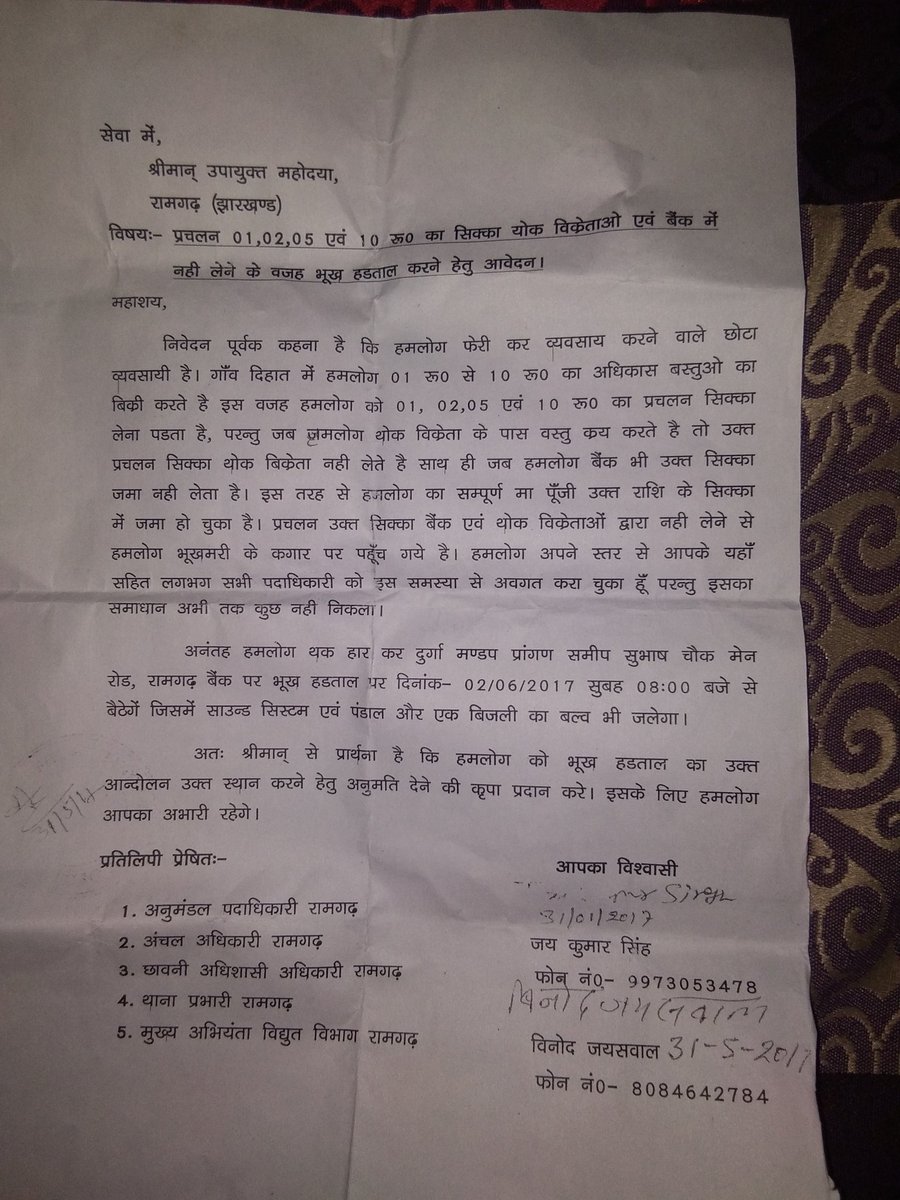 सेवा में,
श्रीमान् उपायुक्त महोदया,
रामगढ़ (झारखण्ड)
विषयः- प्रचलन 01,02,05 एवं 10 रू0 का सिक्का थोक विक्रेताओ एवं बैंक में
नही लेने के वजह भूख हडताल करने हेतु आवेदन।
महाशय,
निवेदन पूर्वक कहना है कि हमलोग फेरी कर व्यवसाय करने वाले छोटा
व्यवसायी है। गाँव दिहात में हमलोग 01 रू0 से 10 रू0 का अधिकास बस्तुओ का
बिकी करते है इस वजह हमलोग को 01, 02,05 एवं 10 रू0 का प्रचलन सिक्का
लेना पडता है, परन्तु जब ज़मलोग थोक विक्रेता के पास वस्तु कय करते है तो उक्त
प्रचलन सिक्का थोक बिक्रेता नही लेते है साथ ही जब हमलोग बैंक भी उक्त सिक्का
जमा नही लेता है। इस तरह से हमलोग का सम्पूर्ण मा पूँजी उक्त राशि के सिक्का
में जमा हो चुका है। प्रचलन उक्त सिक्का बैंक एवं थोक विक्रेताओं द्वारा नही लेने से
हमलोग भूखमरी के कगार पर पहूँच गये है। हमलोग अपने स्तर से आपके यहाँ
सहित लगभग सभी पदाधिकारी को इस समस्या से अवगत करा चुका हूँ परन्तु इसका
समाधान अभी तक कुछ नही निकला।
अनंतह हमलोग थक हार कर दुर्गा मण्डप प्रांगण समीप सुभाष चौक मेन
रोड, रामगढ़ बैंक पर भूख हडताल पर दिनांक- 02/06/2017 सुबह 08:00 बजे से
बैठेगें जिसमें साउन्ड सिस्टम एवं पंडाल और एक बिजली का बल्व भी जलेगा।
अतः श्रीमान् से प्रार्थना है कि हमलोग को भूख हडताल का उक्त
आन्दोलन उक्त स्थान करने हेतु अनुमति देने की कृपा प्रदान करे। इसके लिए हमलोग
आपका अभारी रहेगे।
प्रतिलिपी प्रेषितः-
1. अनुमंडल पदाधिकारी रामगढ़
2. अंचल अधिकारी रामगढ़
3. छावनी अधिशासी अधिकारी रामगढ़
4. थाना प्रभारी रामगढ़
5. मुख्य अभियंता विद्युत विभाग रामगढ़
आपका विश्वासी
Singh
31/01/2017
जय कुमार सिंह
फोन नं0- 9973053478
बिनोद जयसवाल
विनोद जयसवाल 31-5-2017
फोन नं0- 8084642784